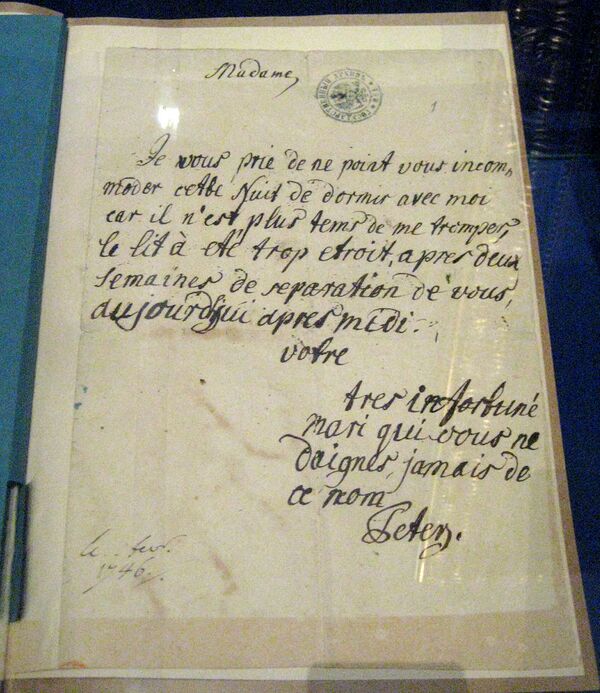 Madame,
1
Je vous prie de ne point vous incom,
moder cette Nuit de dormir avec moi
car il n'est plus tems de me tromper,
le lit à été trop etroit, apres deux
semaines de separation de vous,
aujourd'hui apres midi.
votre
tres infortuné
mari qui vous ne
daignes jamais de
ce nom
Peter.
1746.